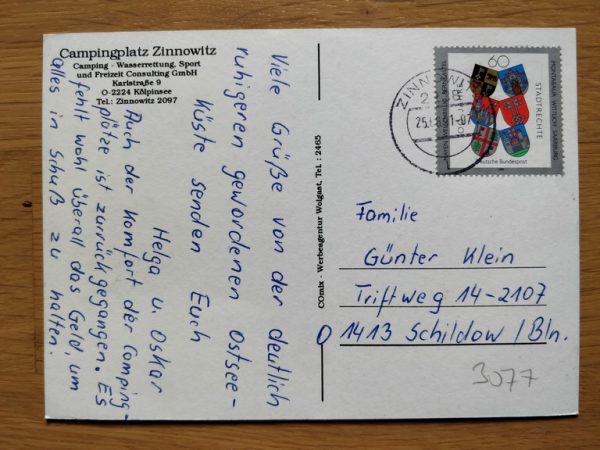 Campingplatz Zinnowitz
Camping · Wasserrettung, Sport
und Freizeit Consulting GmbH
Karlstraße 9
O-2224 Kölpinsee
Tel.: Zinnowitz 2097
Viele Grüße von der deutlich
ruhigeren gewordenen Ostsee-
Küste senden Euch
Helga u. Oskar
Auch der Komfort der Camping-
plätze ist zurückgegangen. Es
fehlt wohl überall das Geld, um
alles in Schuß zu halten.
COmix · Werbeagentur Wolgast, Tel.: 2465
60
STADTRECHTE
MONTABAUR WITTLICH SAARBURG
Deutsche Bundespost
Familie
Günter Klein
Triftweg 14-2107
O 1413 Schildow / Bln.
3077